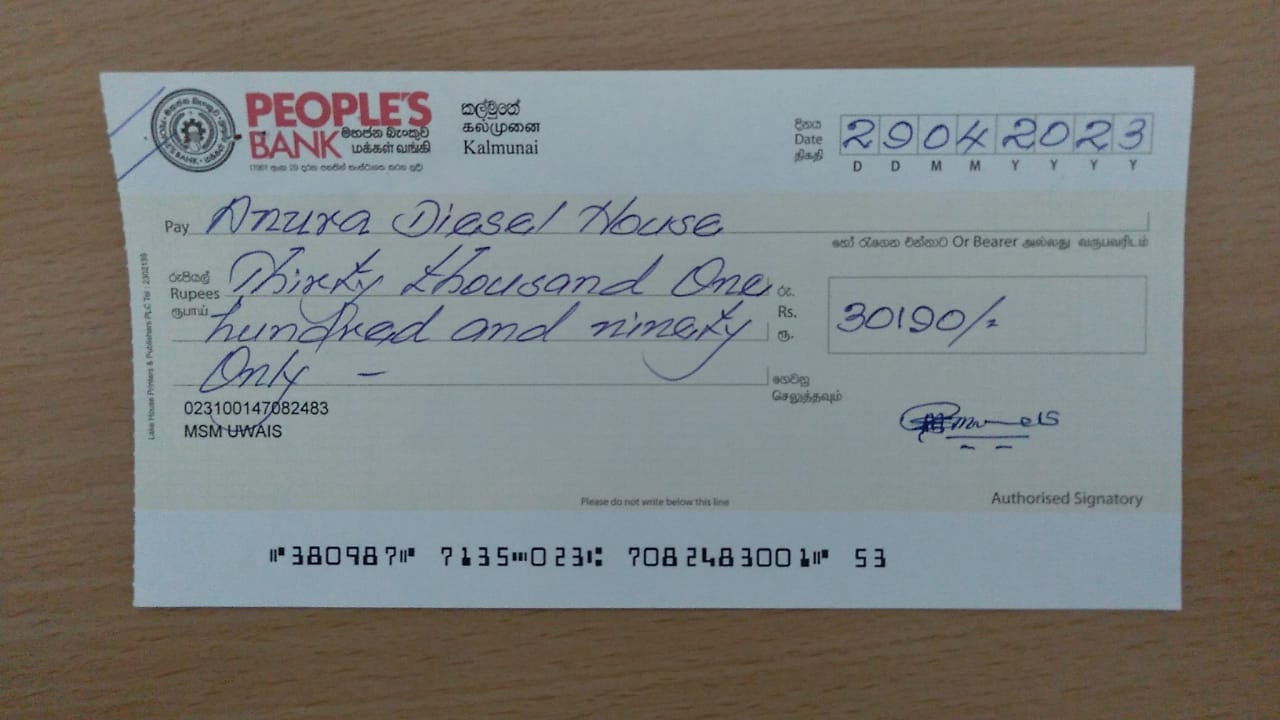 PEOPLE'S
BANK මහජන බැංකුව
மக்கள் வங்கி
කල්මුනේ
கல்முனை
Kalmunai
දිනය
Date
திகதி
29042023
D D M M Y Y Y Y
Pay Anura Diesel House
හෝ රැගෙන එන්නාට Or Bearer அல்லது வருபவரிடம்
රුපියල්
Rupees
ரூபாய்
Thirty thousand One
hundred and ninety
Only -
රු.
Rs.
ரூ.
30190/=
ගෙවනු
செலுத்தவும்
023100147082483
MSM UWAIS
Lake House Printers & Publishers PLC Tel : 2302135
Please do not write below this line
Authorised Signatory
⑈380987⑈ 7135⑉023⑆ 7082483001⑈ 53